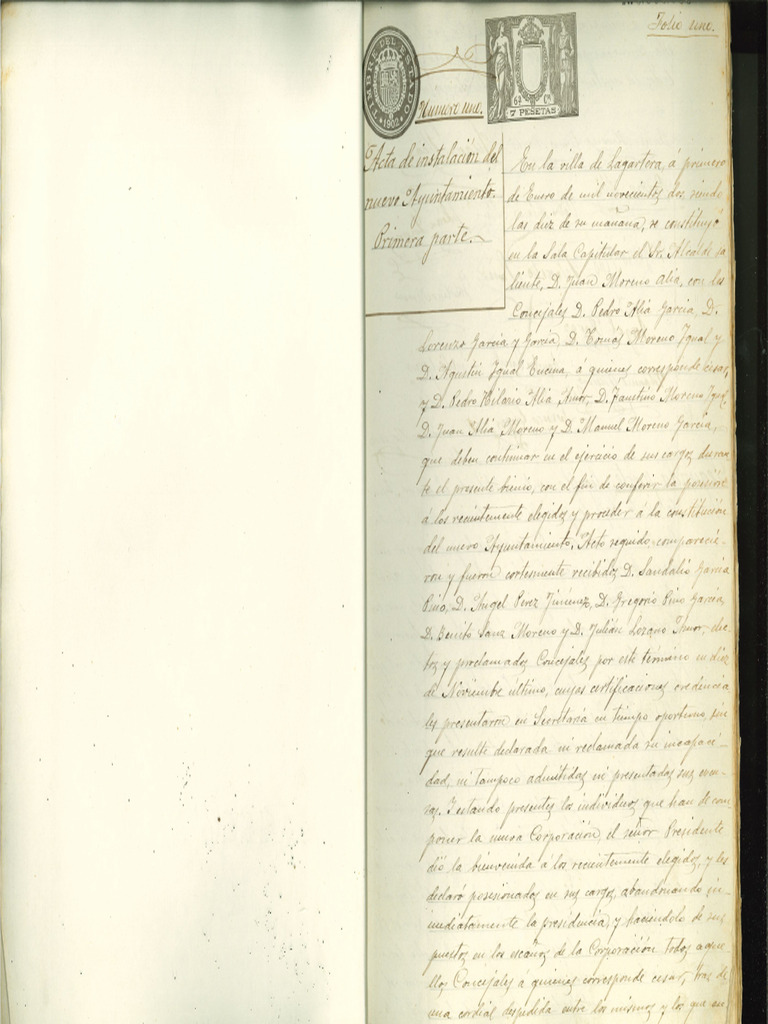 Folio uno.
TIMBRE DEL ESTADO
1902
Número uno.
6ª Cª
7 PESETAS
Acta de instalación del
nuevo Ayuntamiento.
Primera parte.
En la villa de Lagartera, á primero
de Enero de mil novecientos dos siendo
las diez de su mañana, se constituyó
en la Sala Capitular el Sr. Alcalde sa
liente, D. Juan Moreno Alia, con los
Concejales D. Pedro Alia Garcia, D.
Lorenzo Garcia y Garcia, D. Tomás Moreno Igual y
D. Agustin Igual Encina, á quienes corresponde cesar,
y D. Pedro Hilario Alia Amor, D. Faustino Moreno Igual,
D. Juan Alia Moreno y D. Manuel Moreno Garcia,
que deben continuar en el ejercicio de sus cargos duran
te el presente bienio, con el fin de conferir la posesión
á los recientemente elegidos y proceder á la constitución
del nuevo Ayuntamiento. Acto seguido comparecie-
ron y fueron cortesmente recibidos D. Sandalio Garcia
Pino, D. Angel Perez Jimenez, D. Gregorio Pino Garcia,
D. Benito Sanz Moreno y D. Julián Lozano Amor, elec-
tos y proclamados Concejales por este término en diez
de Noviembre último, cuyas certificaciones credencia
les presentaron en Secretaría en tiempo oportuno, sin
que resulte declarada ni reclamada su incapaci-
dad, ni tampoco admitidas ni presentadas sus excu-
sas. Y estando presentes los individuos que han de com
poner la nueva Corporación, el señor Presidente
dió la bienvenida á los recientemente elegidos, y les
declaró posesionados en sus cargos, abandonando in-
mediatamente la presidencia, y haciéndolo de sus
puestos en los escaños de la Corporación todos aque-
llos Concejales á quienes corresponde cesar, tras de
una cordial despedida entre los mismos y los que en